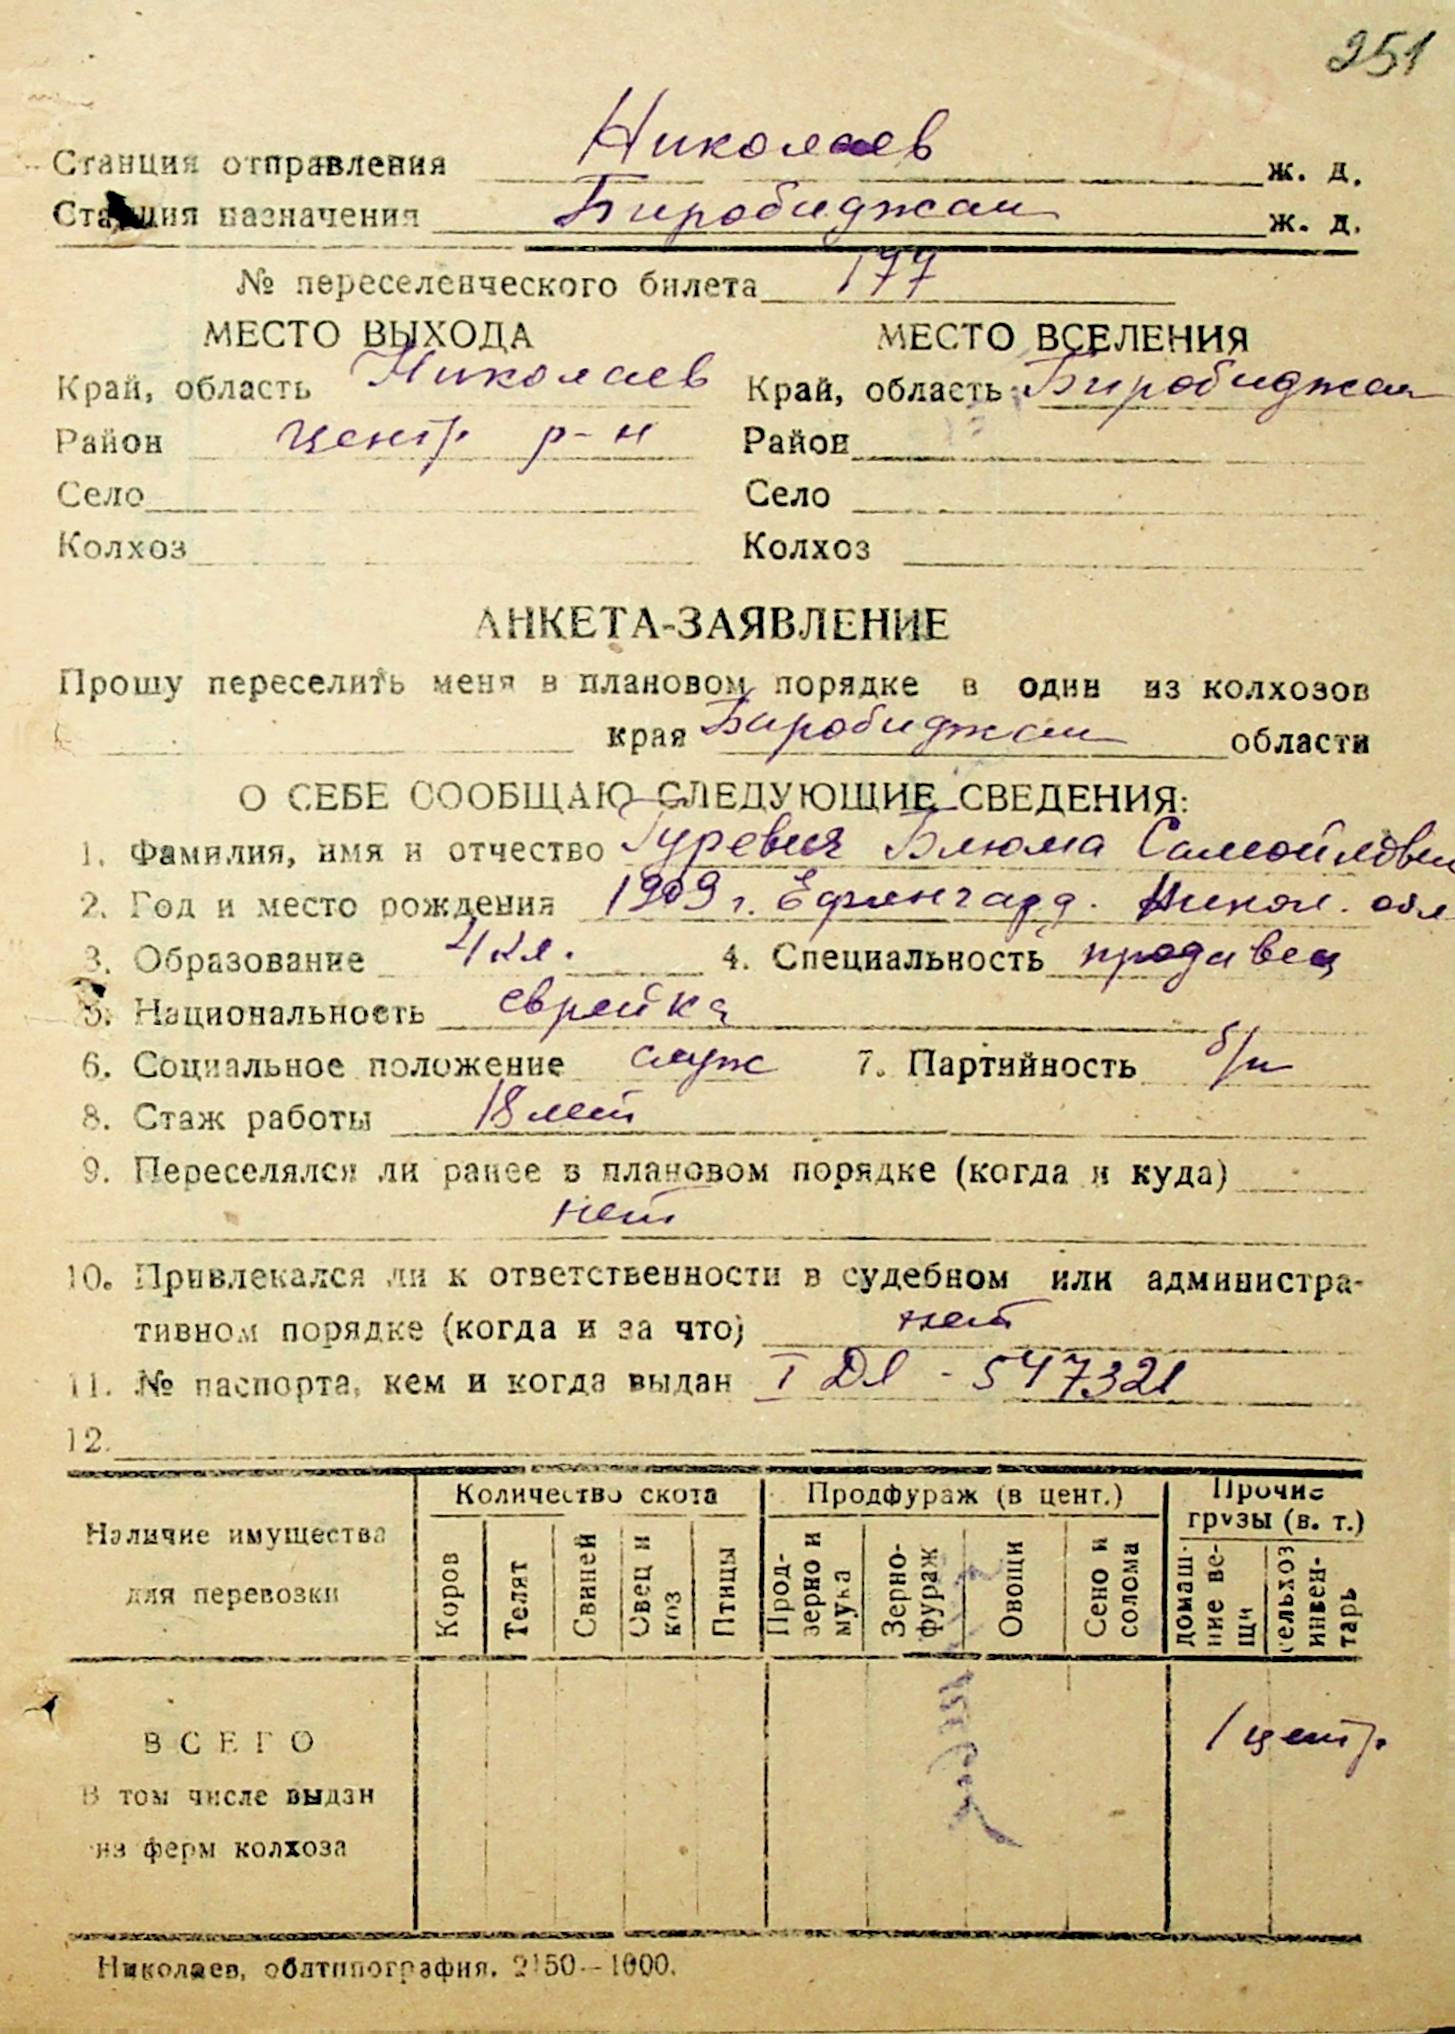 251
Станция отправления Николаев ж. д.
Станция назначения Биробиджан ж. д.
№ переселенческого билета 177
МЕСТО ВЫХОДА МЕСТО ВСЕЛЕНИЯ
Край, область Николаев Край, область Биробиджан
Район центр р-н Район
Село Село
Колхоз Колхоз
АНКЕТА-ЗАЯВЛЕНИЕ
Прошу переселить меня в плановом порядке в один из колхозов
края Биробиджан области
О СЕБЕ СООБЩАЮ СЛЕДУЮЩИЕ СВЕДЕНИЯ:
1. Фамилия, имя и отчество Гуревич Блюма Самойловн
2. Год и место рождения 1909 г. Ефингард. Никол. обл
3. Образование 4 кл. 4. Специальность продавец
5. Национальность еврейка
6. Социальное положение служ 7. Партийность б/п
8. Стаж работы 18 лет
9. Переселялся ли ранее в плановом порядке (когда и куда)
нет
10. Привлекался ли к ответственности в судебном или администра-
тивном порядке (когда и за что) нет
11. № паспорта, кем и когда выдан I ДЯ - 547321
12.
Наличие имущества
для перевозки
Количество скота
Коров
Телят
Свиней
Овец и
коз
Птицы
Продфураж (в цент.)
Прод-
зерно и
мука
Зерно-
фураж
Овощи
Сено и
солома
Прочие
грузы (в. т.)
домаш-
ние ве-
щи
сельхоз
инвен-
тарь
ВСЕГО
1 центр.
В том числе выдан
из ферм колхоза
Николаев, облтипография. 2150—1000.